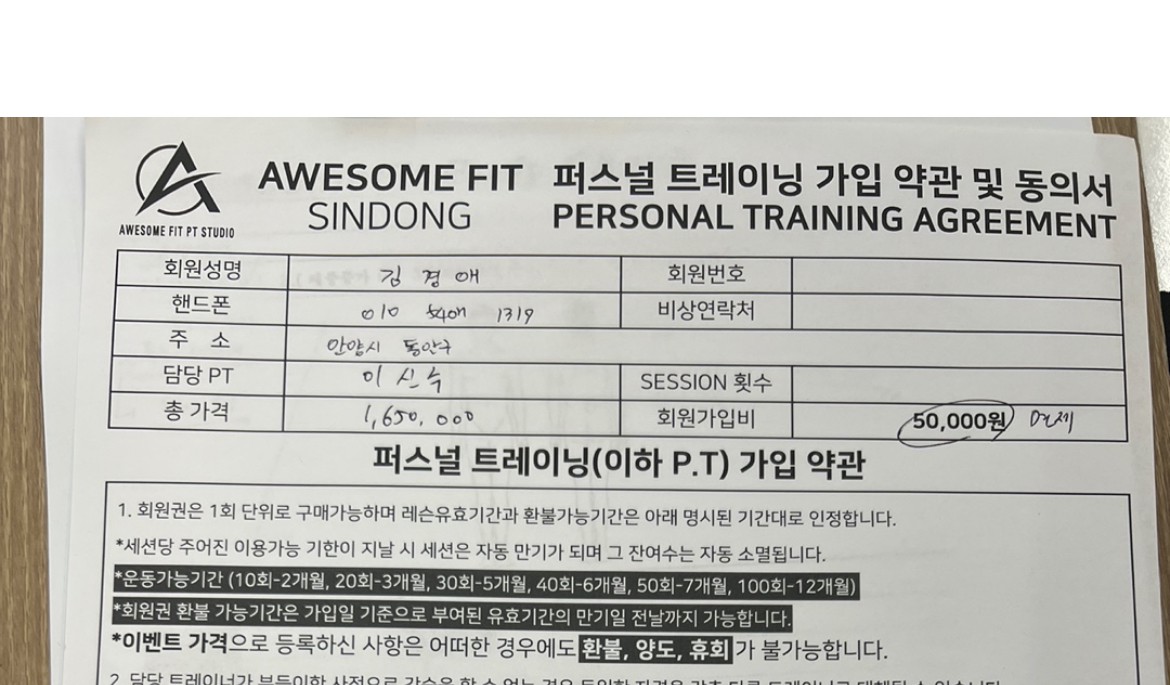 AWESOME FIT PT STUDIO
AWESOME FIT
SINDONG
퍼스널 트레이닝 가입 약관 및 동의서
PERSONAL TRAINING AGREEMENT
회원성명 김경애 회원번호
핸드폰 010 1319 비상연락처
주 소 안양시 동안구
담당 PT 이신수 SESSION 횟수
총 가격 1,650,000 회원가입비 50,000원 면제
퍼스널 트레이닝(이하 P.T) 가입 약관
1. 회원권은 1회 단위로 구매가능하며 레슨유효기간과 환불가능기간은 아래 명시된 기간대로 인정합니다.
*세션당 주어진 이용가능 기한이 지날 시 세션은 자동 만기가 되며 그 잔여수는 자동 소멸됩니다.
*운동가능기간 (10회-2개월, 20회-3개월, 30회-5개월, 40회-6개월, 50회-7개월, 100회-12개월)
*회원권 환불 가능기간은 가입일 기준으로 부여된 유효기간의 만기일 전날까지 가능합니다.
*이벤트 가격으로 등록하신 사항은 어떠한 경우에도 환불, 양도, 휴회가 불가능합니다.
2. 담당 트레이너가